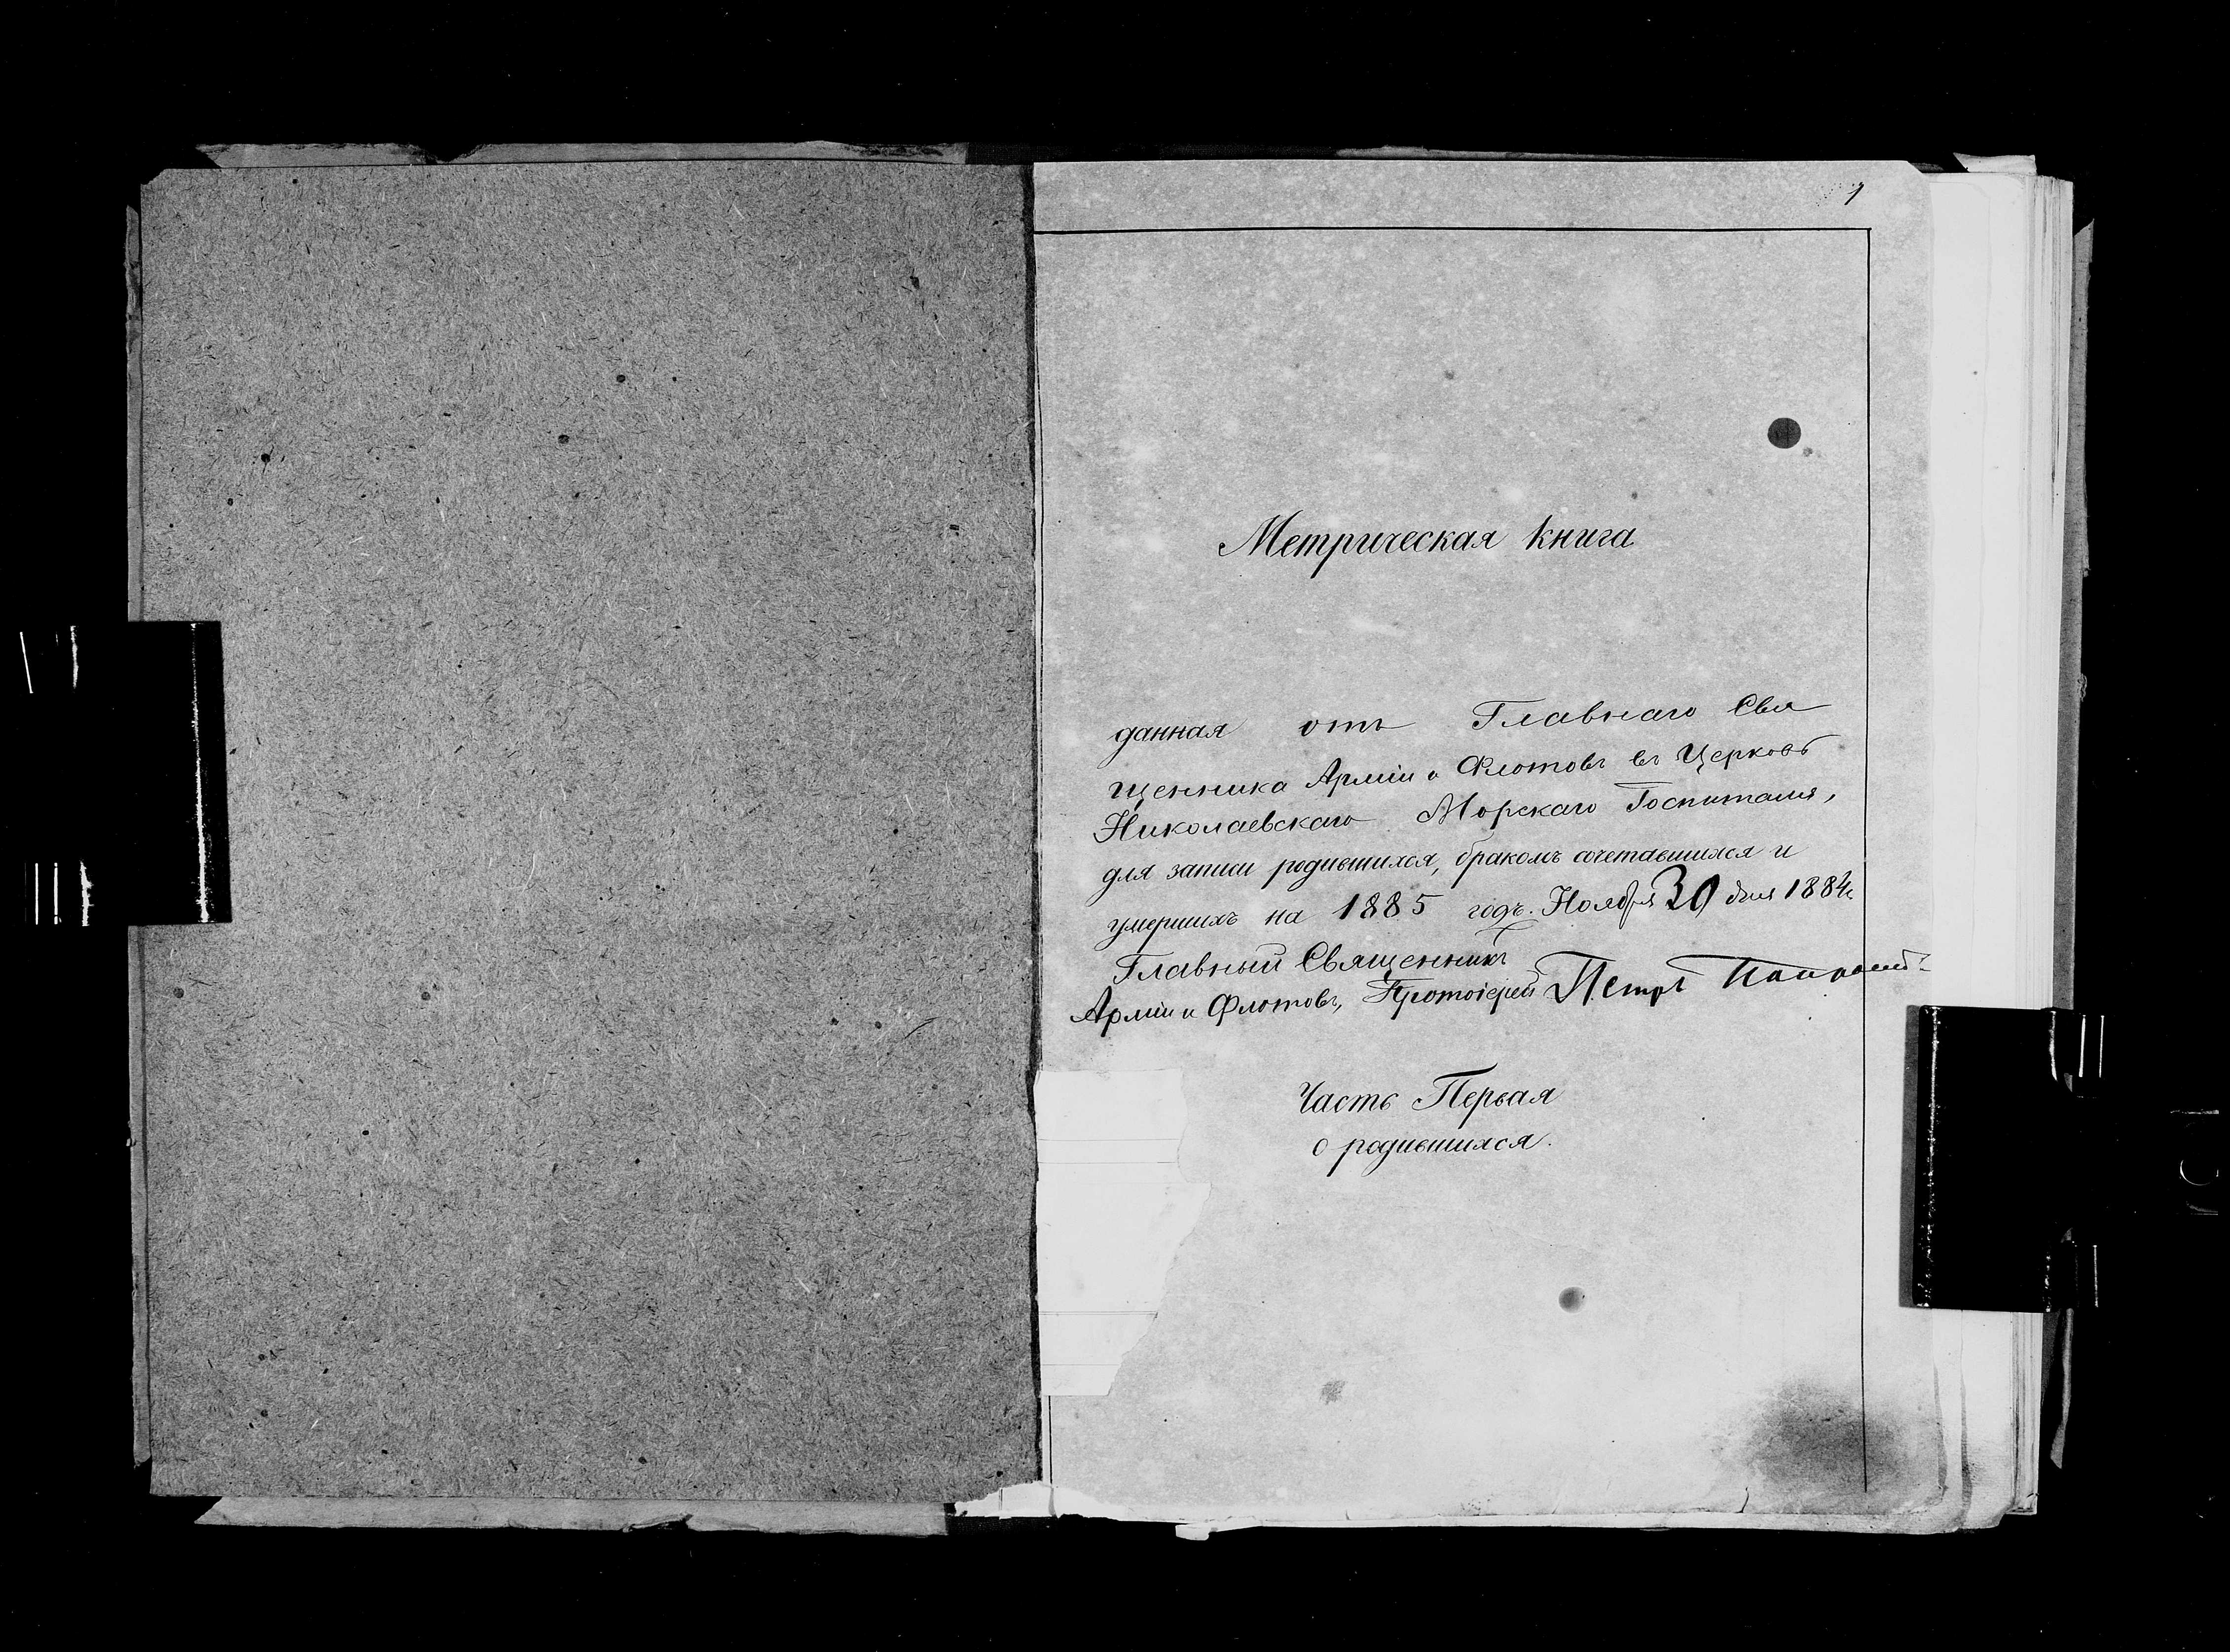 1
Метрическая книга
данная отъ Главнаго Свя
щенника Арміи и Флотовъ въ Церковь
Николаевскаго Морскаго Госпиталя,
для записи родившихся, бракомъ сочетавшихся и
умершихъ на 1885 годъ. Ноября 30 дня 1884 г
Главный Священникъ
Арміи и Флотовъ, Протоіерей Петръ Покровскій
Часть Первая
о родившихся.